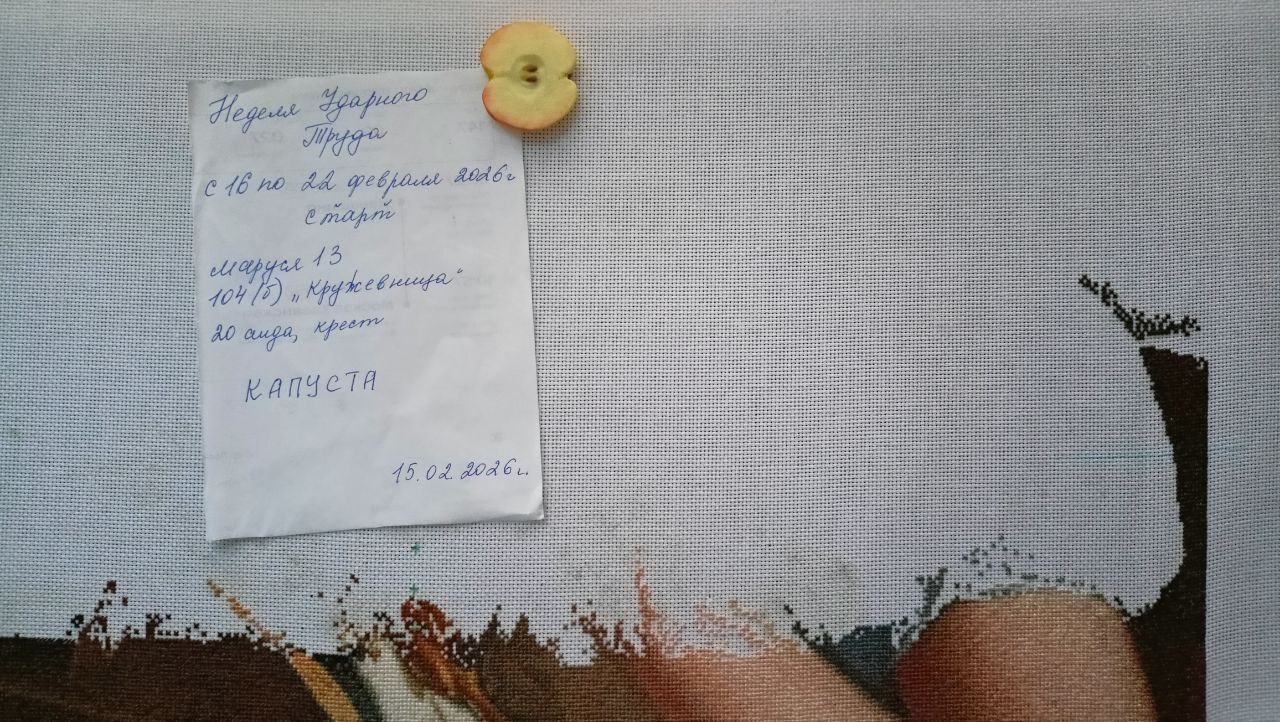 Неделя Ударного
Труда
с 16 по 22 февраля 2026г
старт
Маруся 13
104 (б) „Кружевница"
20 аида, крест
КАПУСТА
15.02.2026г.